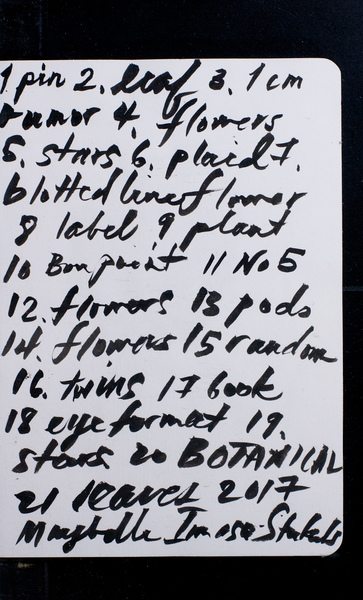 1 pin 2. leaf 3. 1 cm
tumor 4. flowers
5. stars 6. plaid 7.
blotted line flower
8 label 9 plant
10 Bon point 11 No 5
12. flowers 13 pods
14. flowers 15 random
16. twins 17 book
18 eye format 19.
stars 20 BOTANICAL
21 leaves 2017
Maybelle Imasa-Stukuls